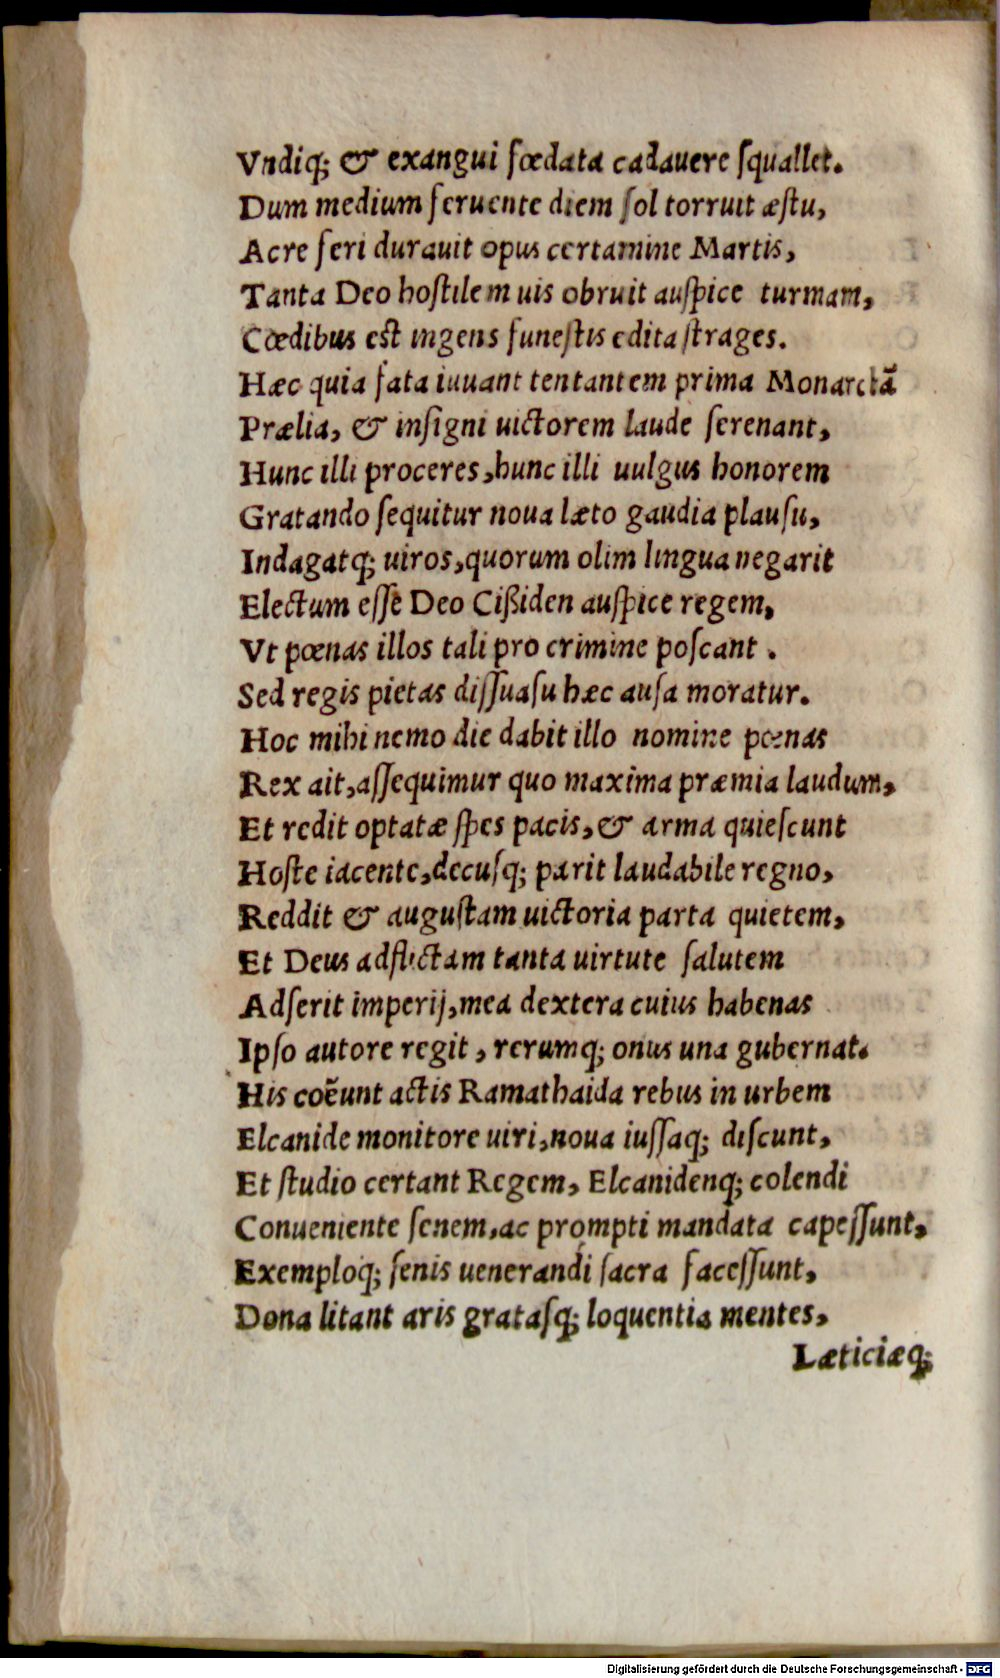 Vndiq; & exangui fœdata cadauere squallet.
Dum medium feruente diem sol torruit æstu,
Acre feri durauit opus certamine Martis,
Tanta Deo hostilem uis obruit auspice turmam,
Cœdibus est ingens funestis edita strages.
Hæc quia fata iuuant tentantem prima Monarchã
Prælia, & insigni uictorem laude serenant,
Hunc illi proceres, hunc illi uulgus honorem
Gratando sequitur noua læto gaudia plausu,
Indagatq; uiros, quorum olim lingua negarit
Electum esse Deo Cißiden auspice regem,
Vt pœnas illos tali pro crimine poscant.
Sed regis pietas dissuasu hæc ausa moratur.
Hoc mihi nemo die dabit illo nomine pœnas
Rex ait, assequimur quo maxima præmia laudum,
Et redit optatæ spes pacis, & arma quiescunt
Hoste iacente, decusq; parit laudabile regno,
Reddit & augustam uictoria parta quietem,
Et Deus adflictam tanta uirtute salutem
Adserit imperij, mea dextera cuius habenas
Ipso autore regit, rerumq; onus una gubernat.
His coẽunt actis Ramathaida rebus in urbem
Elcanide monitore uiri, noua iussaq; discunt,
Et studio certant Regem, Elcanidenq; colendi
Conueniente senem, ac prompti mandata capessunt,
Exemploq; senis uenerandi sacra facessunt,
Dona litant aris gratasq; loquentia mentes,
Læticiæq;
Digitalisierung gefördert durch die Deutsche Forschungsgemeinschaft - DFG